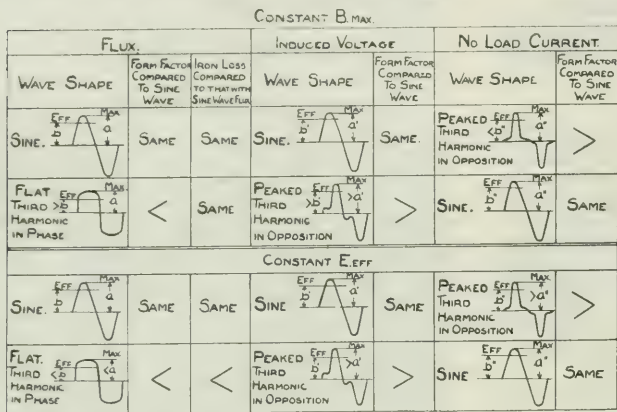 CONSTANT B.MAX.
FLUX. INDUCED VOLTAGE NO LOAD CURRENT
WAVE SHAPE FORM FACTOR COMPARED TO SINE WAVE IRON LOSS COMPARED TO THAT WITH SINE WAVE FLUX WAVE SHAPE FORM FACTOR COMPARED TO SINE WAVE WAVE SHAPE FORM FACTOR COMPARED TO SINE WAVE
SINE. EFF b MAX a SAME SAME SINE. EFF b' MAX a' SAME. PEAKED THIRD HARMONIC IN OPPOSITION EFF <b" MAX a" >
FLAT THIRD HARMONIC IN PHASE EFF >b MAX. a < SAME PEAKED THIRD HARMONIC IN OPPOSITION EFF >b' MAX >a' > SINE. EFF b" MAX a" SAME
CONSTANT E.EFF
SINE. EFF b MAX a SAME SAME SINE EFF b' MAX a' SAME PEAKED THIRD HARMONIC IN OPPOSITION EFF b" MAX >a" >
FLAT. THIRD HARMONIC IN PHASE EFF <b MAX <a < < PEAKED THIRD HARMONIC IN OPPOSITION EFF b' MAX >a' > SINE EFF b" MAX a" SAME